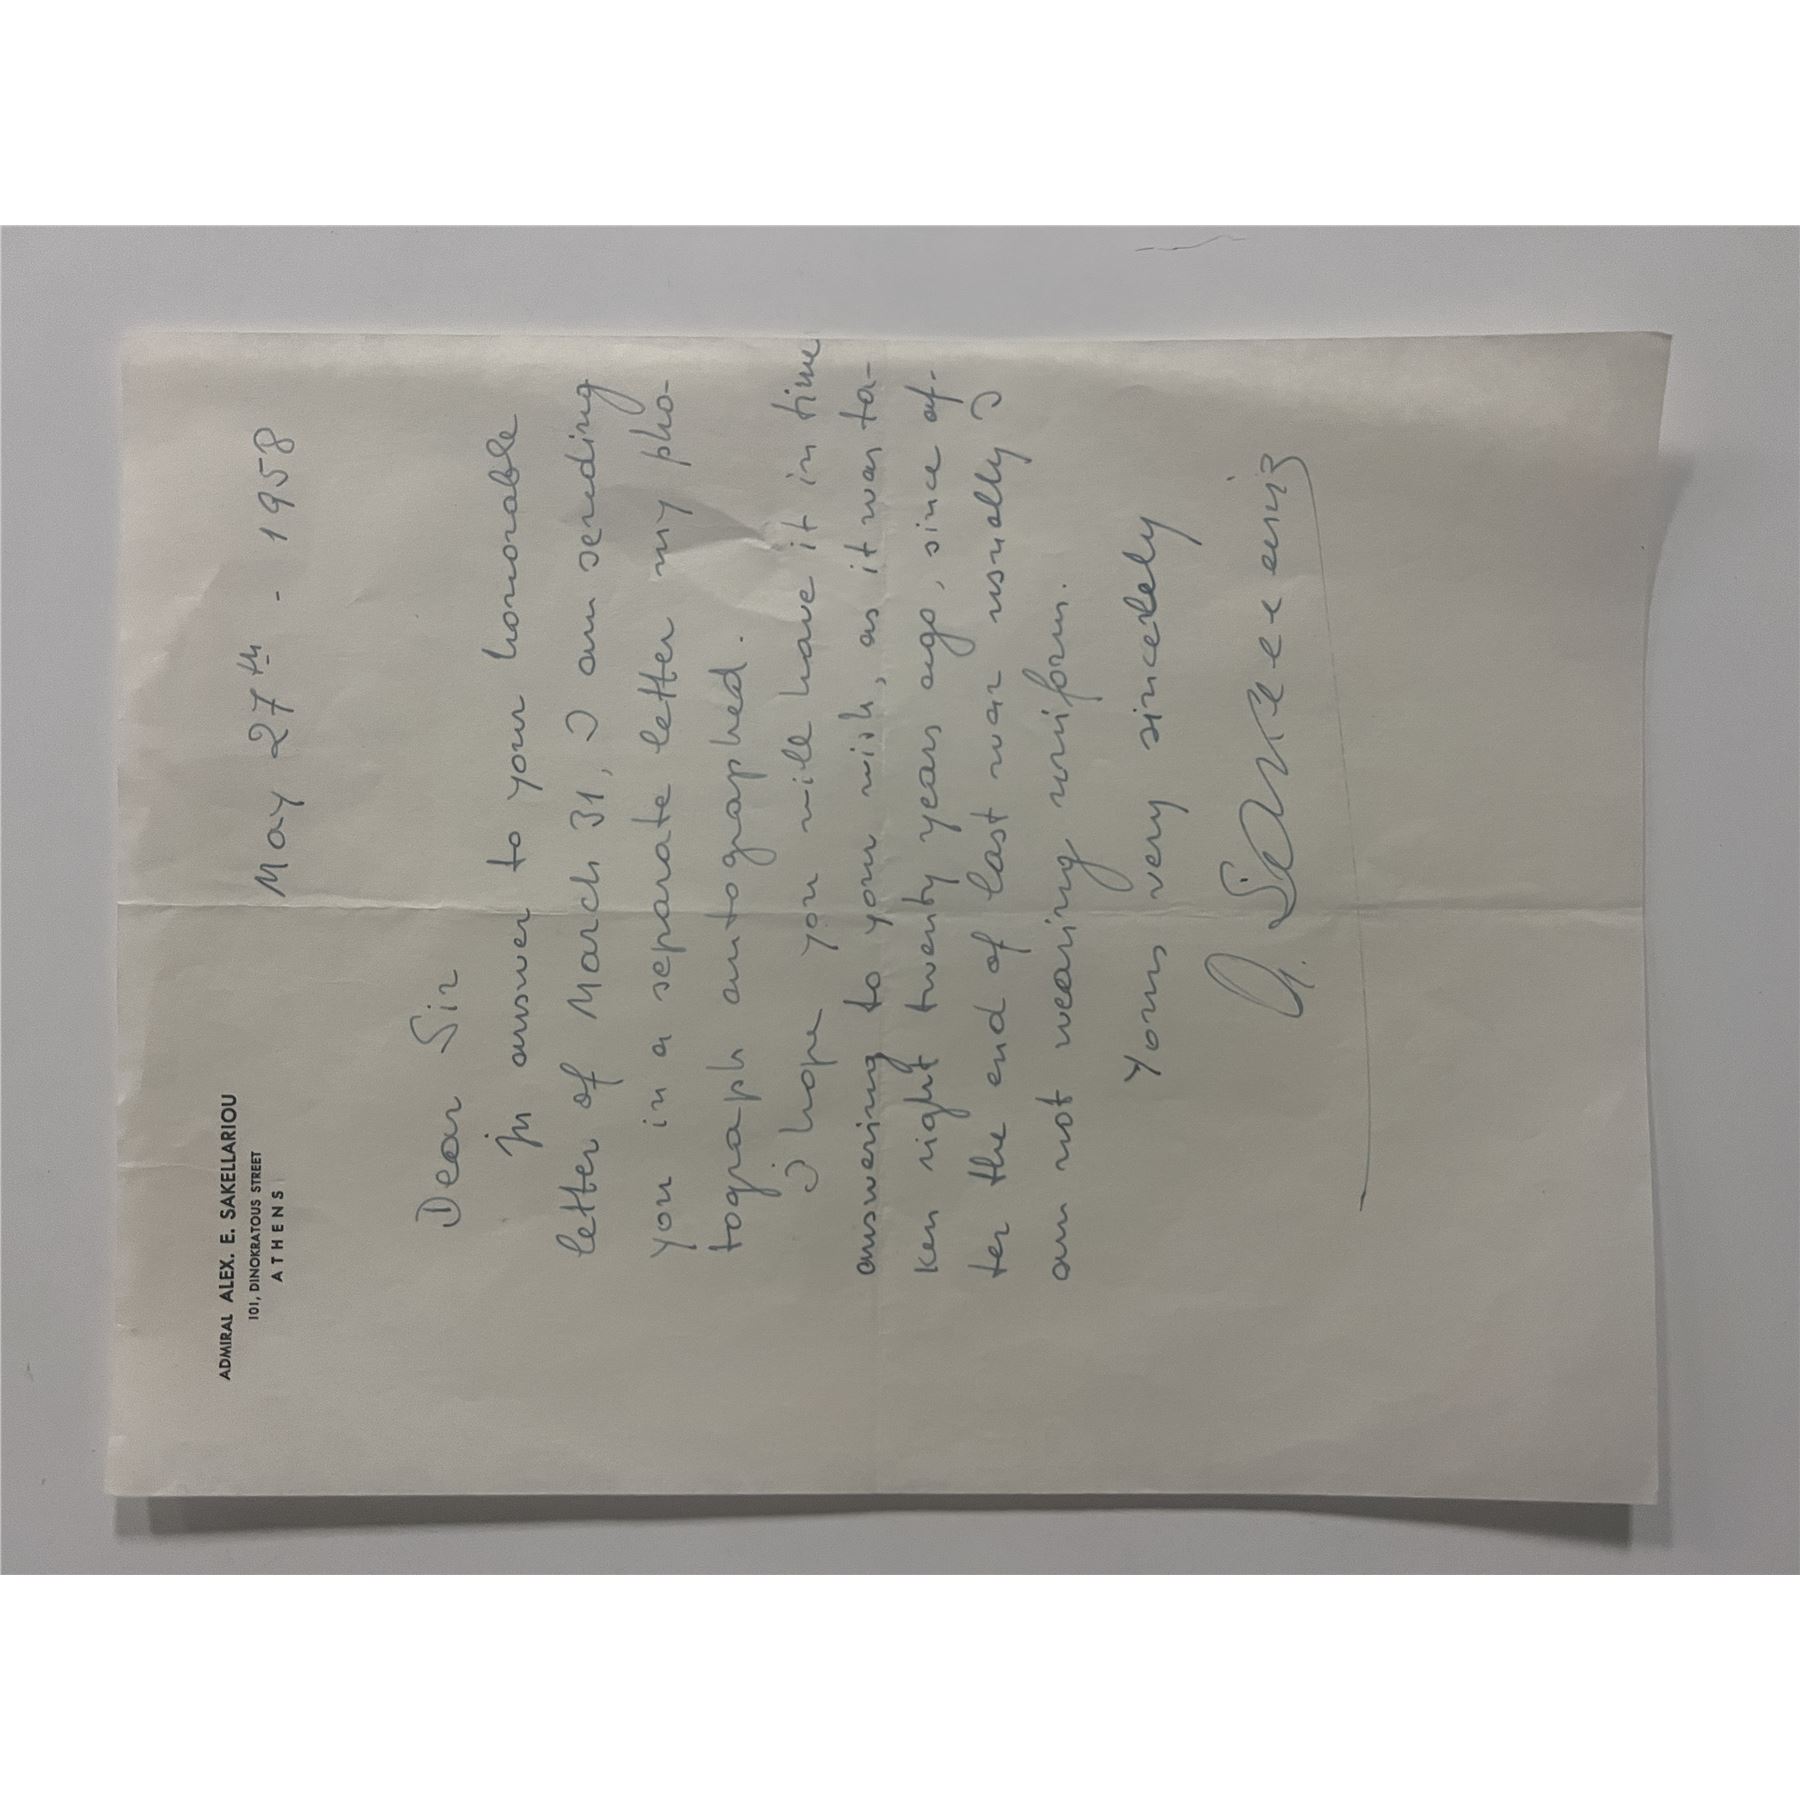 ADMIRAL ALEX. E. SAKELLARIOU
101, DINOKRATOUS STREET
ATHENS
May 27th - 1958
Dear Sir
In answer to your honorable
letter of March 31, I am sending
you in a separate letter my pho-
tograph autographed.
I hope you will have it in time
answering to your wish, as it was ta-
ken right twenty years ago, since af-
ter the end of last war usually I
am not wearing uniform.
Yours very sincerely
A. Sakellariou